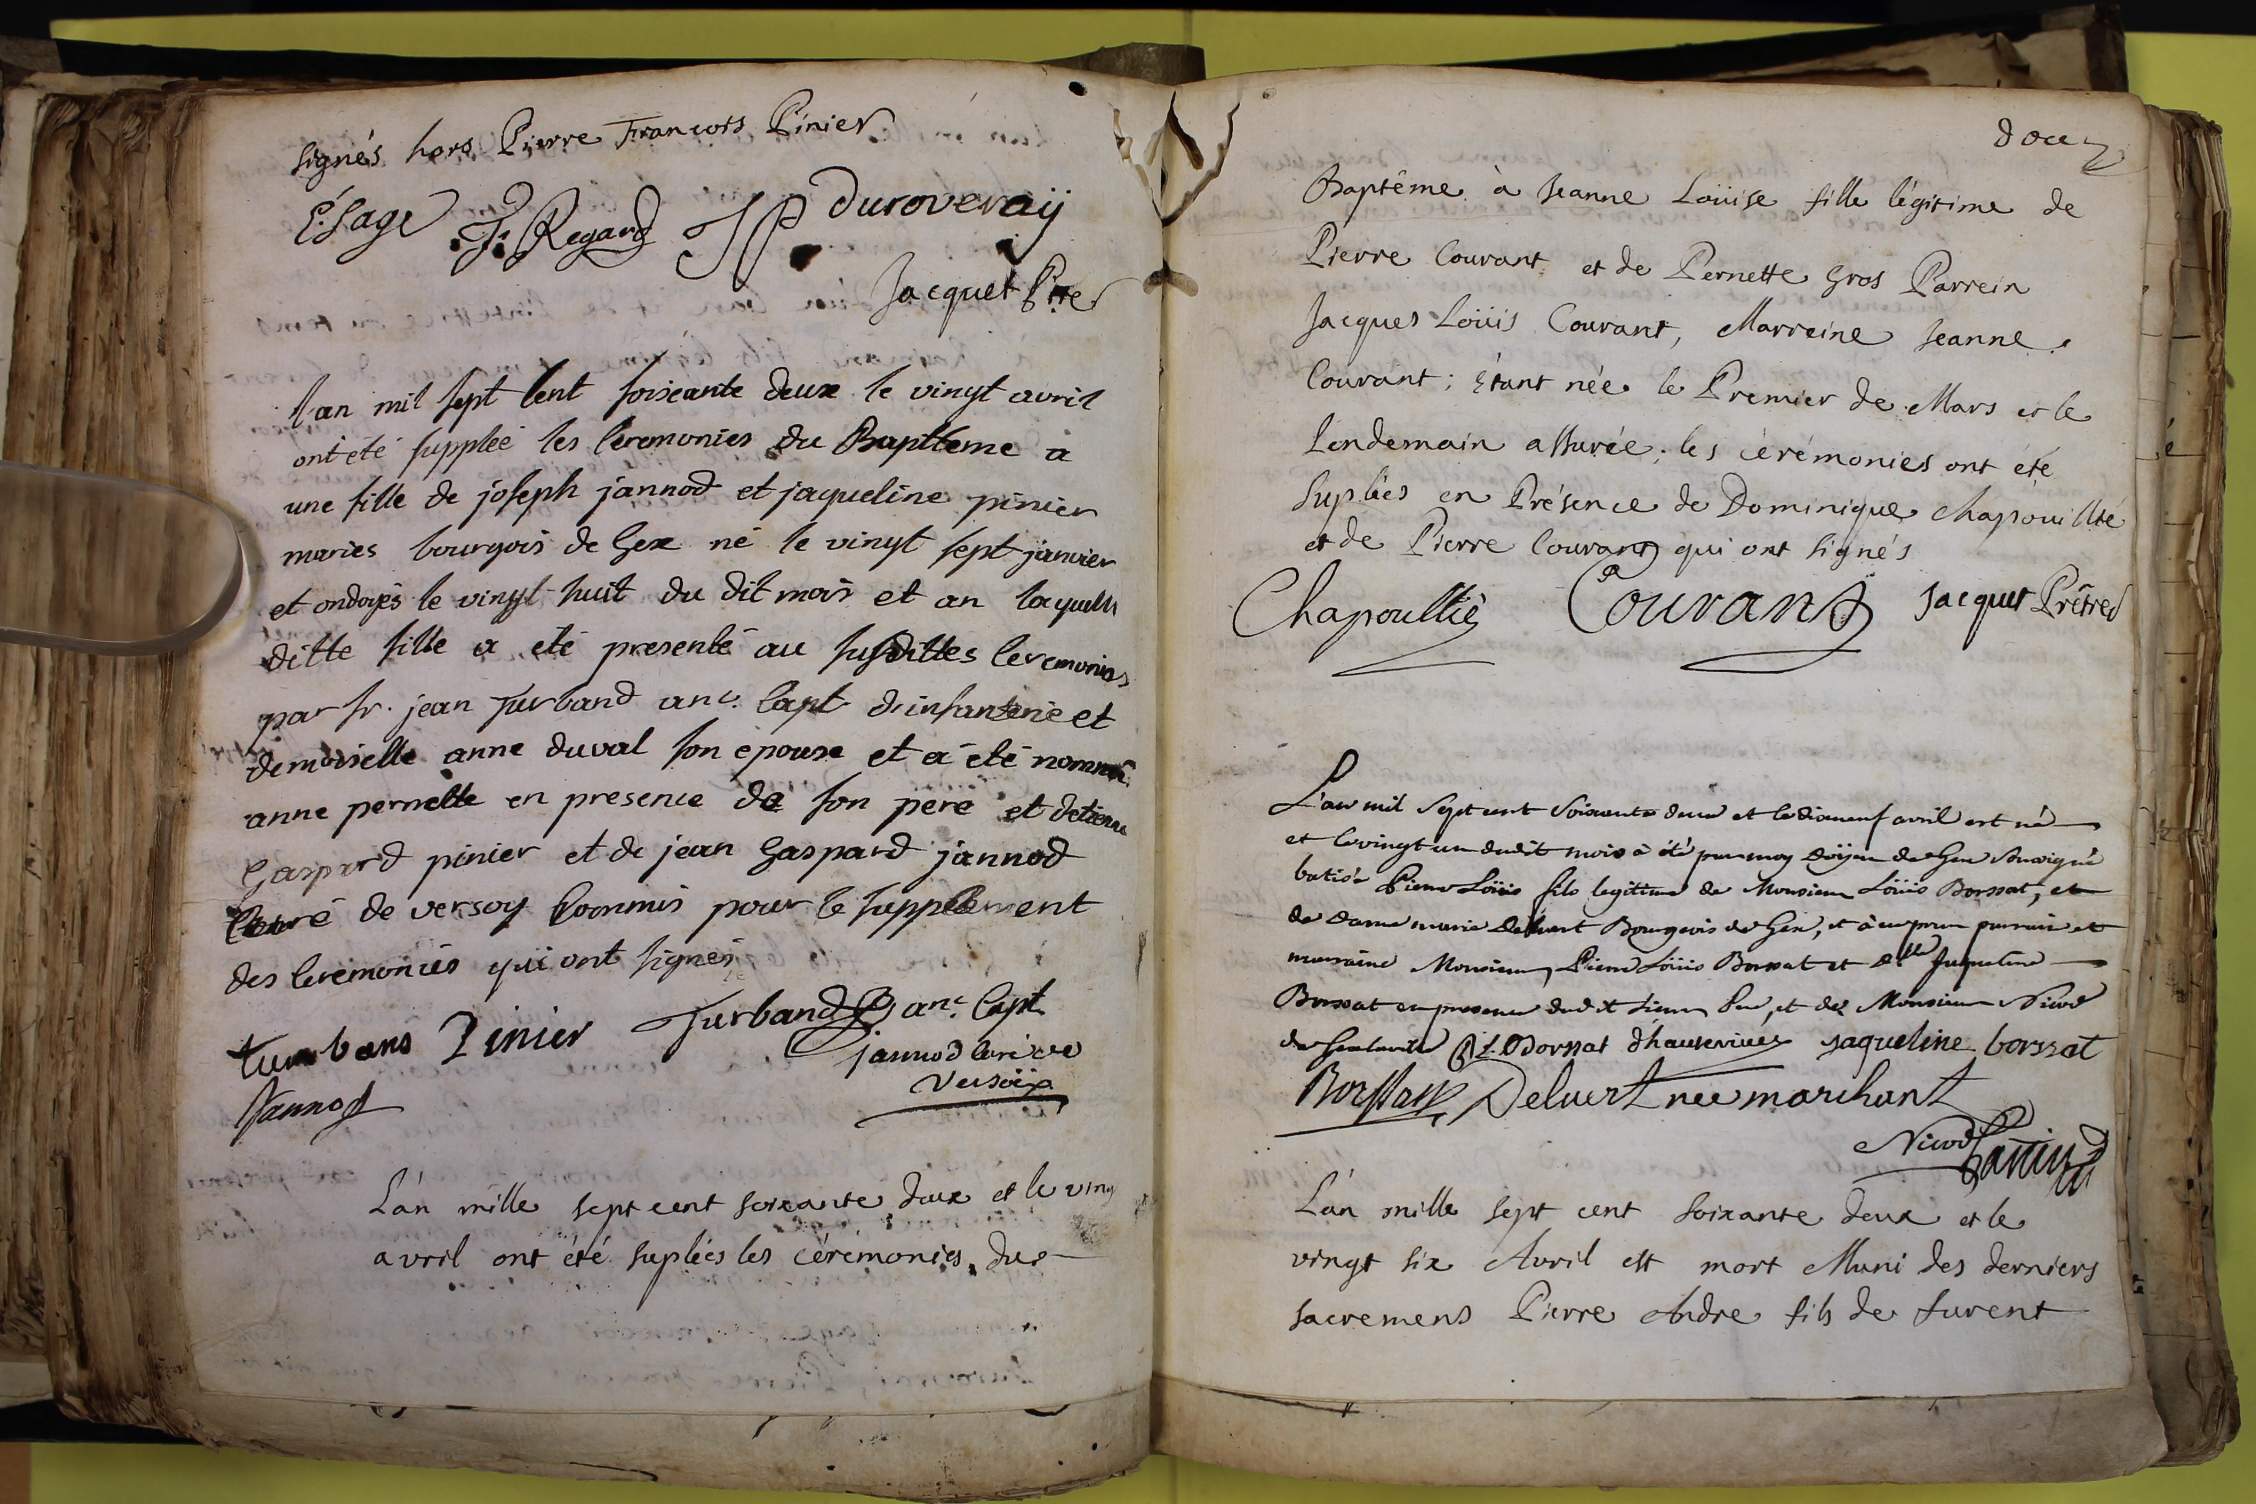 signés hors Pierre François Pinier
E. Sage J. Regard J P Duroveraÿ
Jacquet Ptre
lan mil sept cent soixante deux le vingt avril
ont été supplée les ceremonies du Baptteme a
une fille de joseph jannod et jaqueline pinier
maries bourgois de Gex né le vingt sept janvier
et ondoyés le vingt huit du dit mois et an laquelle
ditte fille a eté presenté au susdittes ceremonies
par sr. jean Turband anc. Capt d'infanterie et
demoiselle anne duval son epouse et a été nommé
anne pernette en presence de son pere et detienne
Gaspard pinier et de jean Gaspard jannod
Curé de versoy Commis pour le supplement
des ceremonies qui ont signés
Pinier Turband anc. Capt.
jannod curé de
Versoix
Jannod
L'an mille sept cent soixante deux et le ving
avril ont été supléés les cérémonies du
douz
Baptême à Jeanne Loüise fille légitime de
Pierre Courant et de Pernette Gros Parrein
Jacques Loüis Courant, Marreine Jeanne
Courant; étant née le Premier de Mars et le
Lendemain assurée; les cérémonies ont été
supléés en Présence de Dominique Chapouillié
et de Pierre Courant qui ont signés
Chapoullié Courant Jacquet Prêtre
L'an mil sept cent soixante deux et le dixneuf avril est né
et le vingt un dudit mois à été par moy Doÿen de Gex soussigné
batisé Pierre Loüis fils legitime de Monsieur Loüis Borssat, et
de Dame marie Deluert Bourgeois de Gex, et à eu pour parrain et
marraine Monsieur Pierre Loüis Borssat et Dlle Jaqueline
Borssat en presence dudit sieur Pere, et de Monsieur Nicod
de P L Borssat dhauterives jaqueline borssat
Borssat Deluert nee marchant
Nicod
L'an mille sept cent soixante deux et le
vingt six Avril est mort Muni des derniers
sacremens Pierre Andre fils de furent